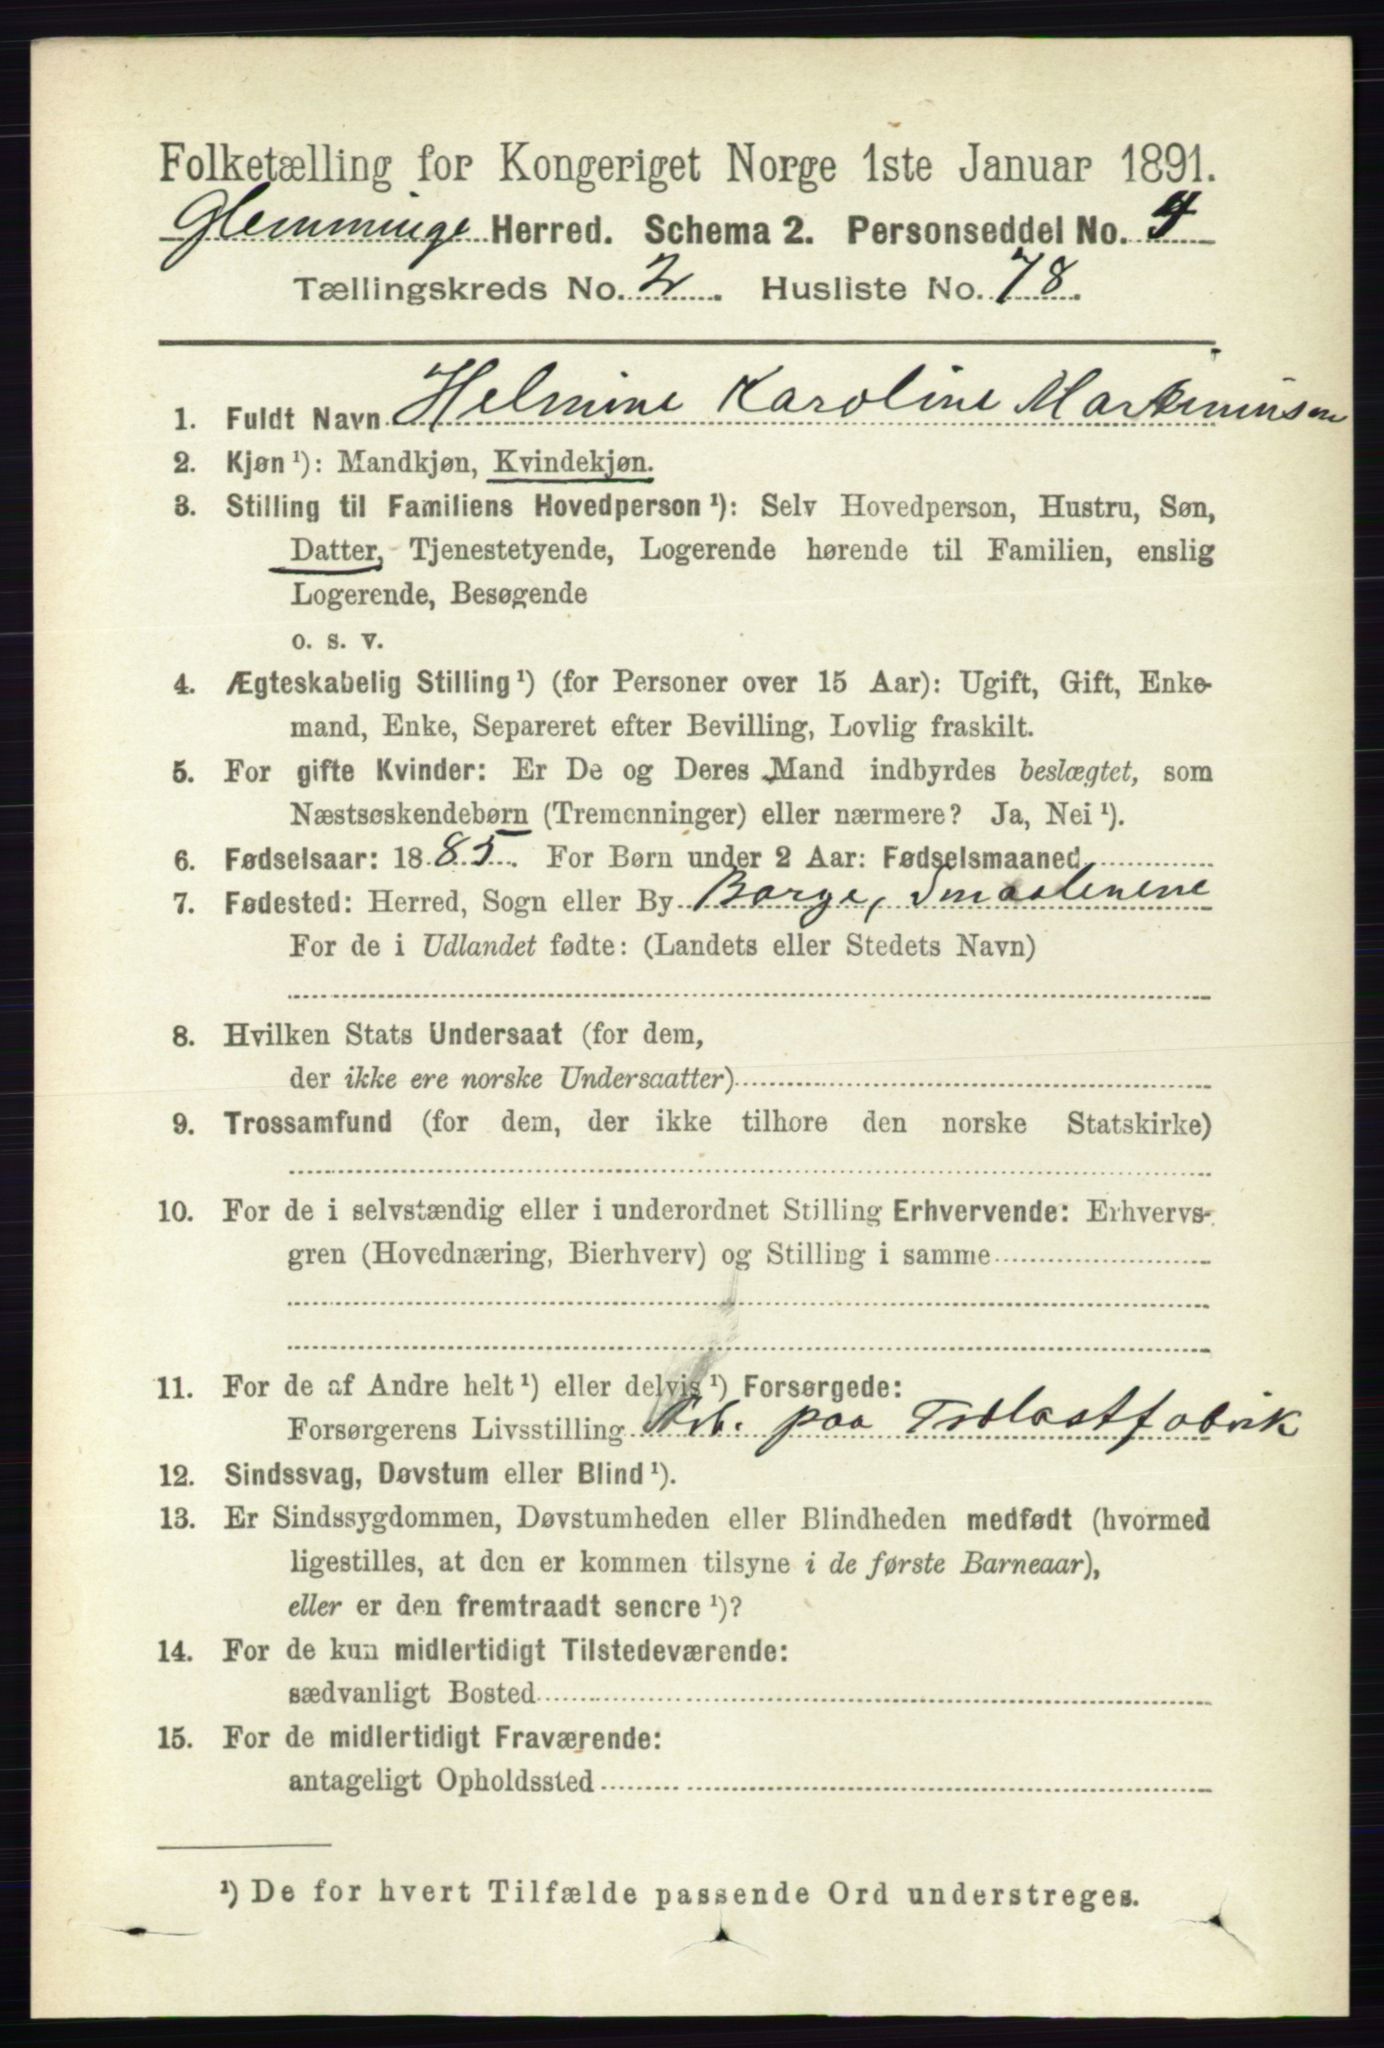 Folketælling for Kongeriget Norge 1ste Januar 1891.
Glemminge Herred. Schema 2. Personseddel No. 4
Tællingskreds No. 2. Husliste No. 78.
1. Fuldt Navn Helmine Karoline
2. Kjøn ¹): Mandkjøn, Kvindekjøn.
3. Stilling til Familiens Hovedperson ¹): Selv Hovedperson, Hustru, Søn,
Datter, Tjenestetyende, Logerende hørende til Familien, enslig
Logerende, Besøgende
o. s. v.
4. Ægteskabelig Stilling ¹) (for Personer over 15 Aar): Ugift, Gift, Enke-
mand, Enke, Separeret efter Bevilling, Lovlig fraskilt.
5. For gifte Kvinder: Er De og Deres Mand indbyrdes beslægtet, som
Næstsøskendebørn (Tremenninger) eller nærmere? Ja, Nei ¹).
6. Fødselsaar: 1885. For Børn under 2 Aar: Fødselsmaaned
7. Fødested: Herred, Sogn eller By Borge, Smaalenene
For de i Udlandet fødte: (Landets eller Stedets Navn)
8. Hvilken Stats Undersaat (for dem,
der ikke ere norske Undersaatter)
9. Trossamfund (for dem, der ikke tilhøre den norske Statskirke)
10. For de i selvstændig eller i underordnet Stilling Erhvervende: Erhvervs-
gren (Hovednæring, Bierhverv) og Stilling i samme
11. For de af Andre helt ¹) eller delvis ¹) Forsørgede:
Forsørgerens Livsstilling Arb. paa
12. Sindssvag, Døvstum eller Blind ¹).
13. Er Sindssygdommen, Døvstumheden eller Blindheden medfødt (hvormed
ligestilles, at den er kommen tilsyne i de første Barneaar),
eller er den fremtraadt senere ¹)?
14. For de kun midlertidigt Tilstedeværende:
sædvanligt Bosted
15. For de midlertidigt Fraværende:
antageligt Opholdssted
¹) De for hvert Tilfælde passende Ord understreges.